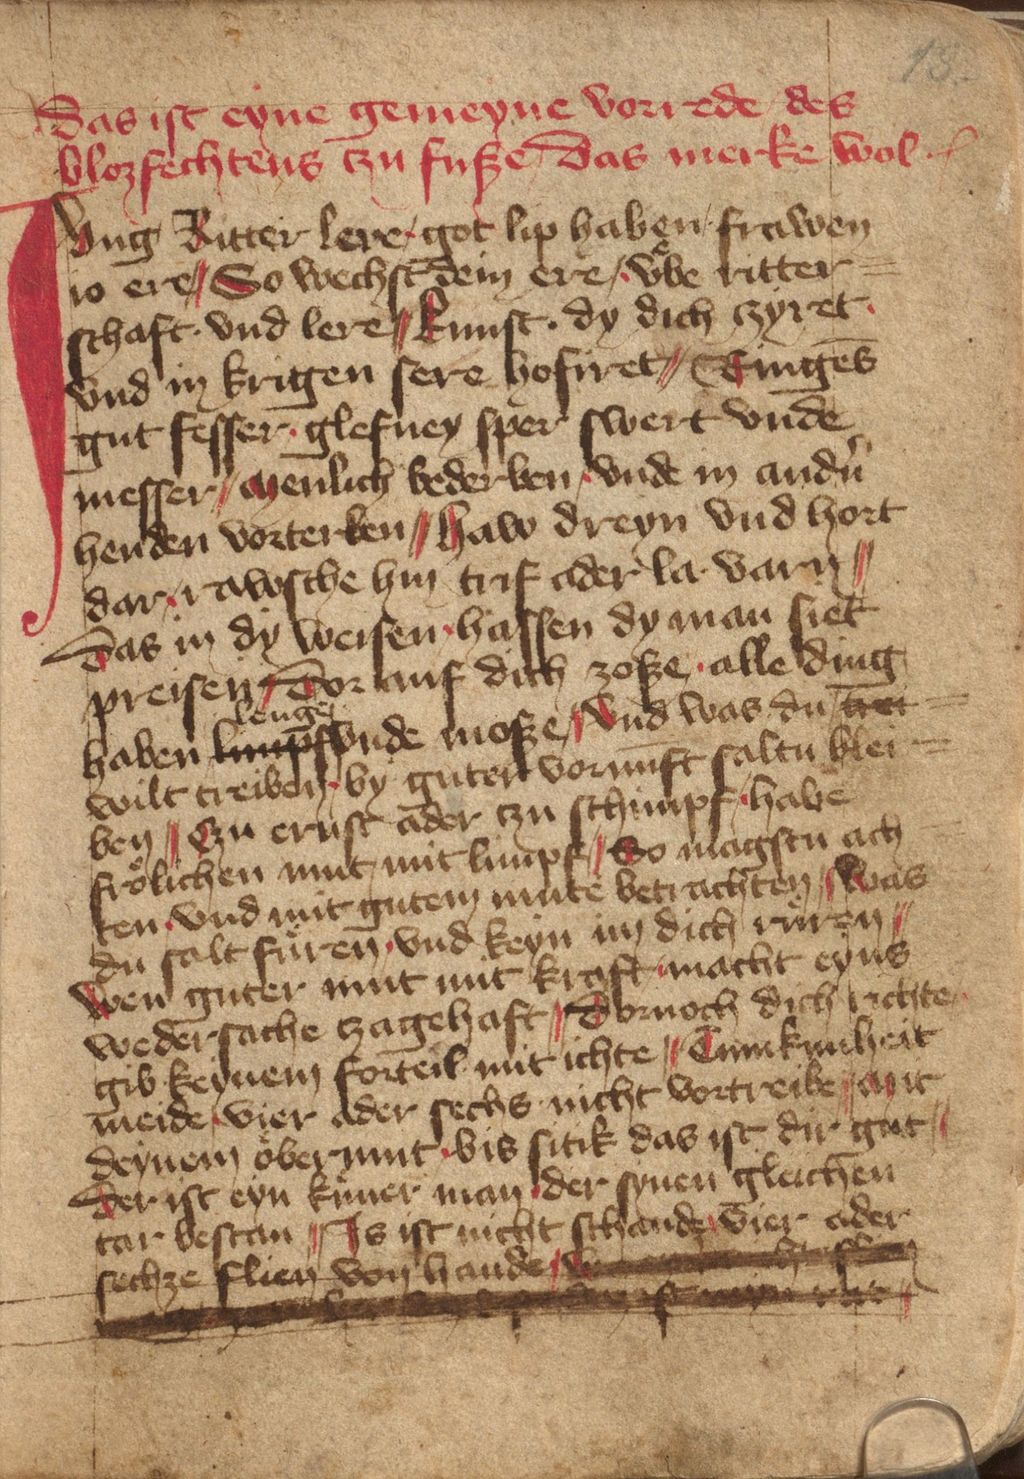 18.
Das ist eyne gemeyne vorrede des
blozfechtens czu fuße Das merke wol
Iung Ritter lere · got lip haben · frawen
io ere / So wechst dein ere / vbe ritter=
schaft · vnd lere / kunst · dy dich czyret ·
vnd in krigen sere hofiret / Ringe͞s
gut fesser · glefney sper swert vnde
messer / menlich bederben · vnde in andn̄
henden vorterben / Haw dreyn vnd hort
dar · rawsche hin trif ader la varn /
Das in dy weisen · hassen dy man siet
preisen / Dor auf dich zoße · alle ding
lenge
haben limpf vnde moße / Vnd was du tret=
wilt treiben · by guter vornūft saltu blei=
ben / Czu ernst ader czu schimpf · habe
frölichen mut mit limpf / So magstu ach
ten · vnd mit gutem mute betrachten / Was
du salt füren · vnd keyn im dich rüren /
Wen guter mut mit kraft · macht eyns
wedersache czagehaft / Dornoch dich richte ·
gib keynem forteil mit ichte / Tumkunheit
meide · vier ader sechs nicht vortreibe / Mit
deynem öbermut · bis sitik das ist dir gut /
Der ist eyn küner man · der synen gleichen
tar bestan / Is ist nicht schande · vier ader
sechze flien von hande /